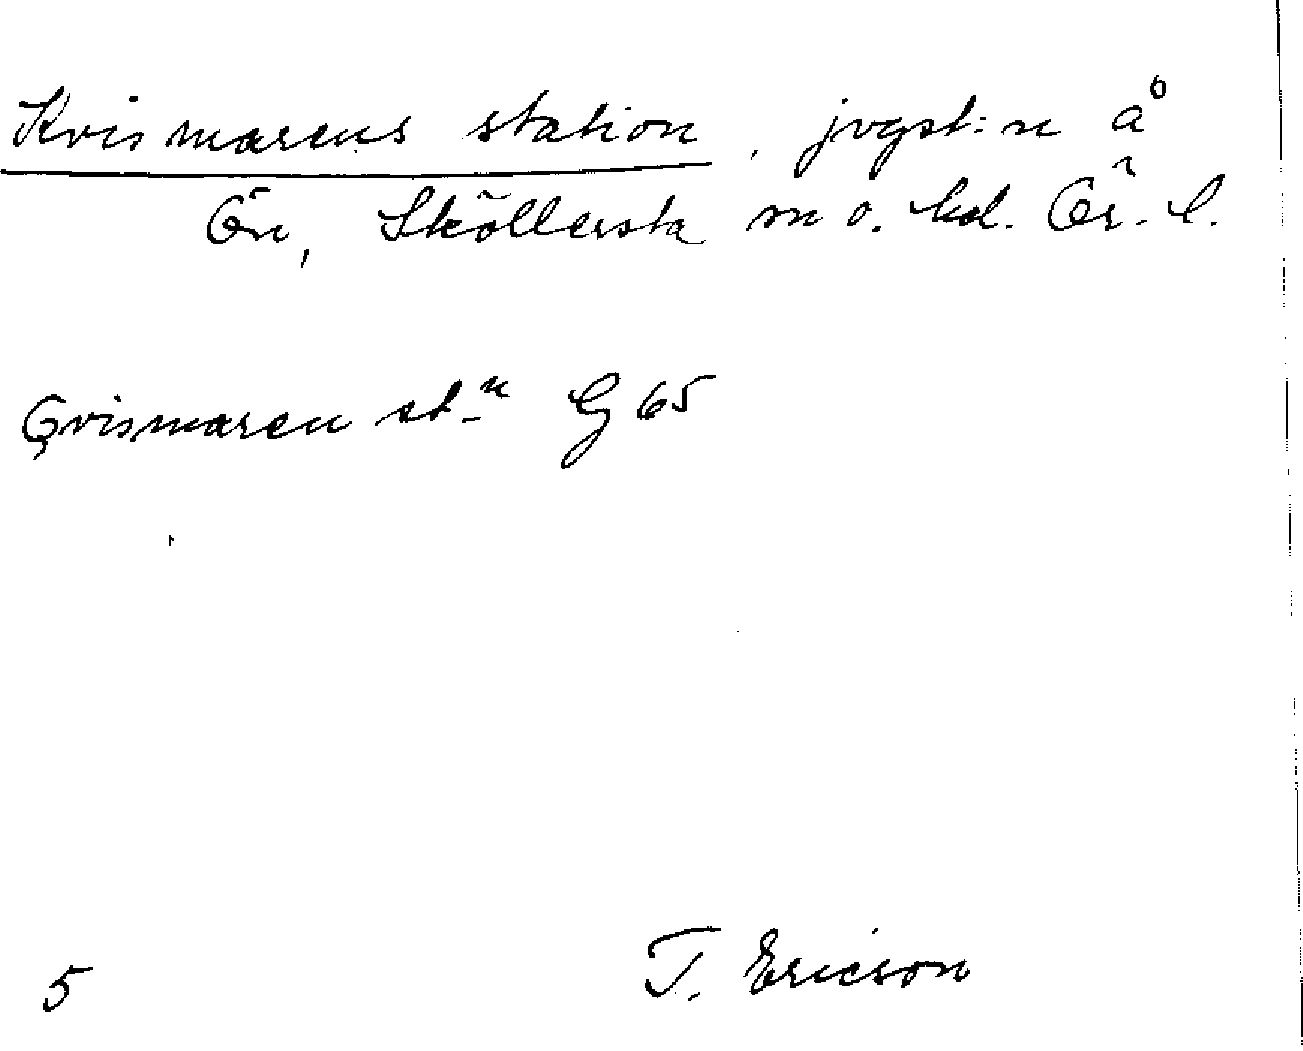 Kvismarens station, jvgst:n å
Ön, Sköllersta sn o. hd. Ör. l.
Qvismaren st-n G 65
5 T. Ericson